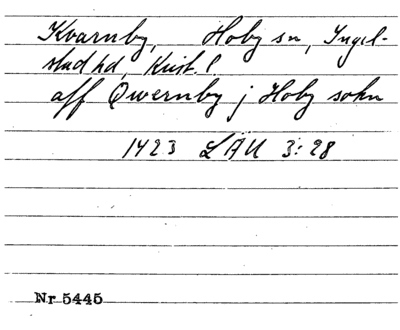 Kvarnby, Hoby sn, Ingel-
stad hd, Krist. l
aff Qwernby j Hoby sokn
1423 LÄU 3:28
Nr 5445